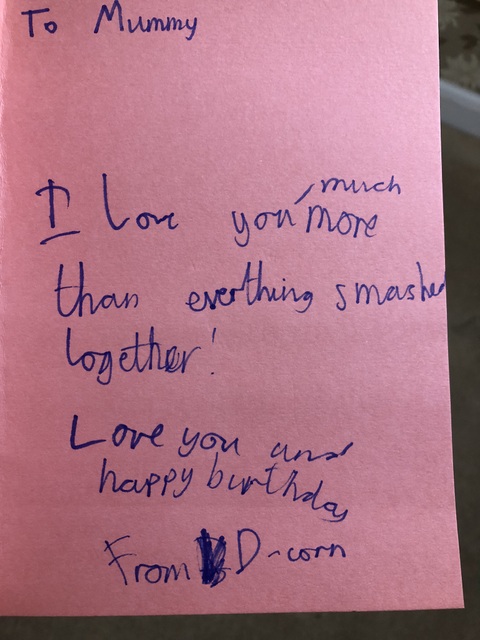 To Mummy
much
I Love you more
than everthing smashed
together!
Love you and
happy birthday
From D-corn